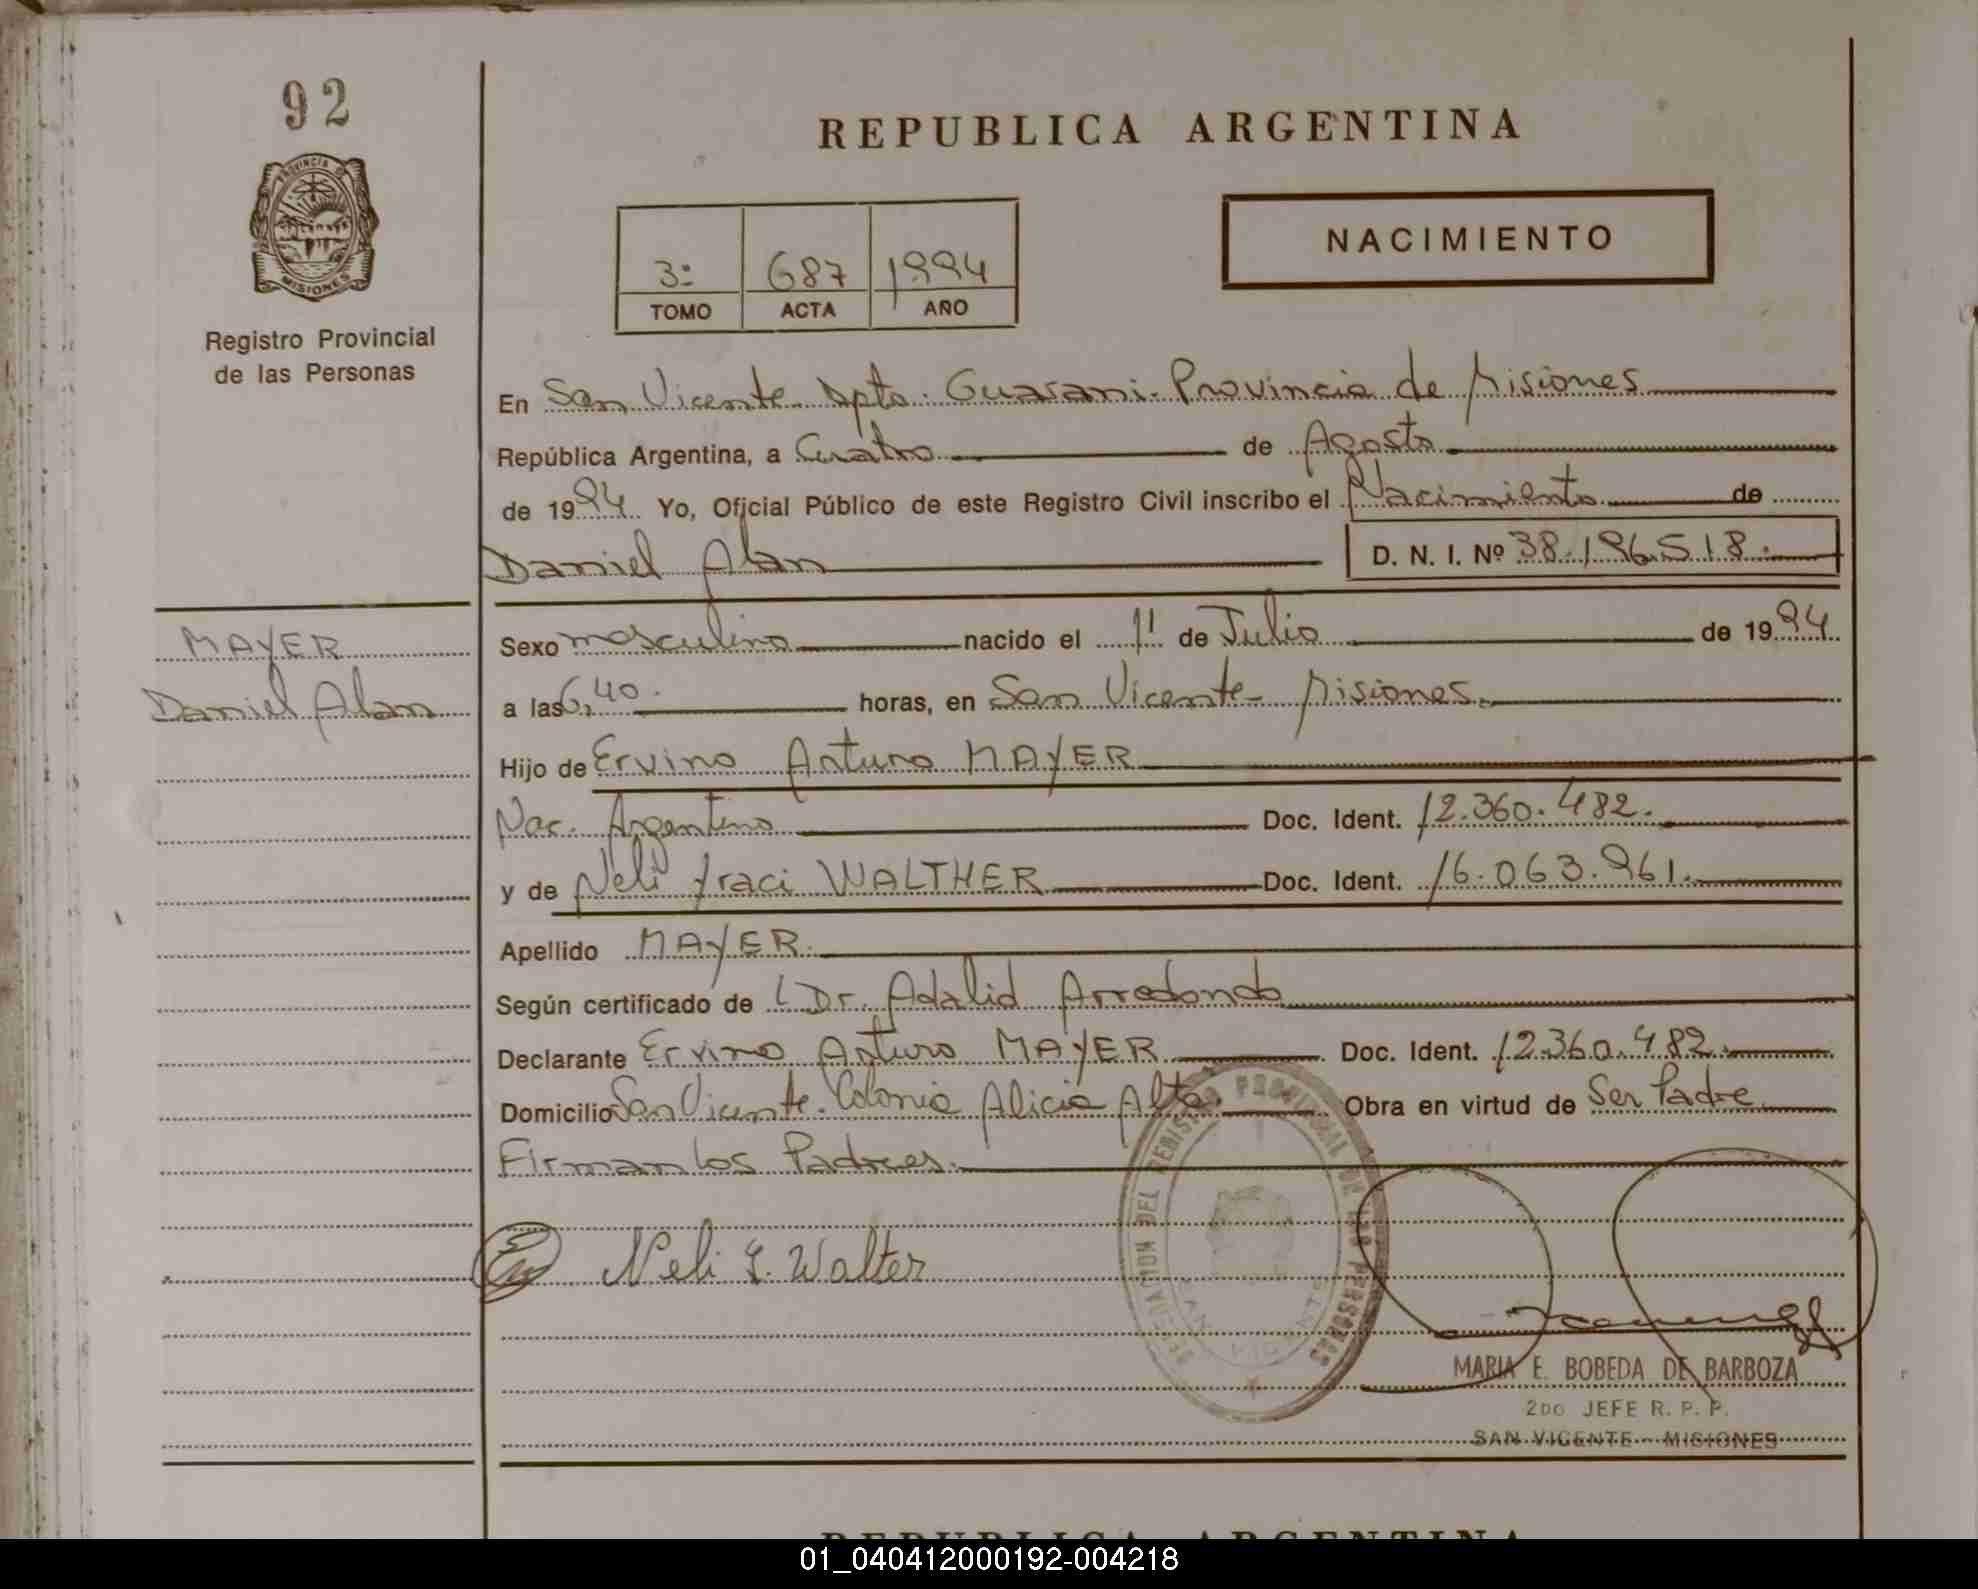 92
PROVINCIA D
MISIONES
Registro Provincial
de las Personas
REPUBLICA ARGENTINA
NACIMIENTO
3º 687 1994
TOMO ACTA AÑO
En San Vicente Dpto. Guarani. Provincia de Misiones
República Argentina, a Cuatro de Agosto
de 1994 Yo, Oficial Público de este Registro Civil inscribo el Nacimiento de
Daniel Alan D. N. I. Nº 38.196.518.
MAYER
Daniel Alan
Sexo masculino nacido el 11 de Julio de 1994
a las 6,40. horas, en San Vicente - Misiones.
Hijo de Ervino Arturo MAYER
Nac. Argentino Doc. Ident. 12.360.482.
y de Neli Iraci WALTHER Doc. Ident. 16.063.961.
Apellido MAYER.
Según certificado de Dr. Adalid Arredondo
Declarante Ervino Arturo MAYER Doc. Ident. 12.360.482.
Domicilio San Vicente. Colonia Alicia Alta. Obra en virtud de Ser Padre
Firman los Padres.
Neli I. Walter
DEL REGISTRO PROVINCIAL DE LAS PERSONAS
SAN VICENTE
MARIA E. BOBEDA DE BARBOZA
2DO JEFE R. P. P.
SAN VICENTE - MISIONES
REPUBLICA ARGENTINA
01_040412000192-004218